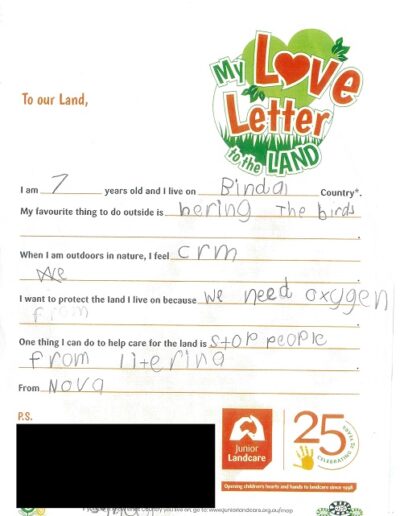 My Love
Letter
to the LAND
To our Land,
I am 7 years old and I live on Bindal Country*.
My favourite thing to do outside is hering The birds
.
When I am outdoors in nature, I feel crm
We .
I want to protect the land I live on because We need oxygen
from .
One thing I can do to help care for the land is stop people
from litering .
From Nova
P.S.
Junior
Landcare
25 YEARS
CELEBRATING
Opening children's hearts and hands to landcare since 1998
Country you live on, go to: www.juniorlandcare.org.au/map